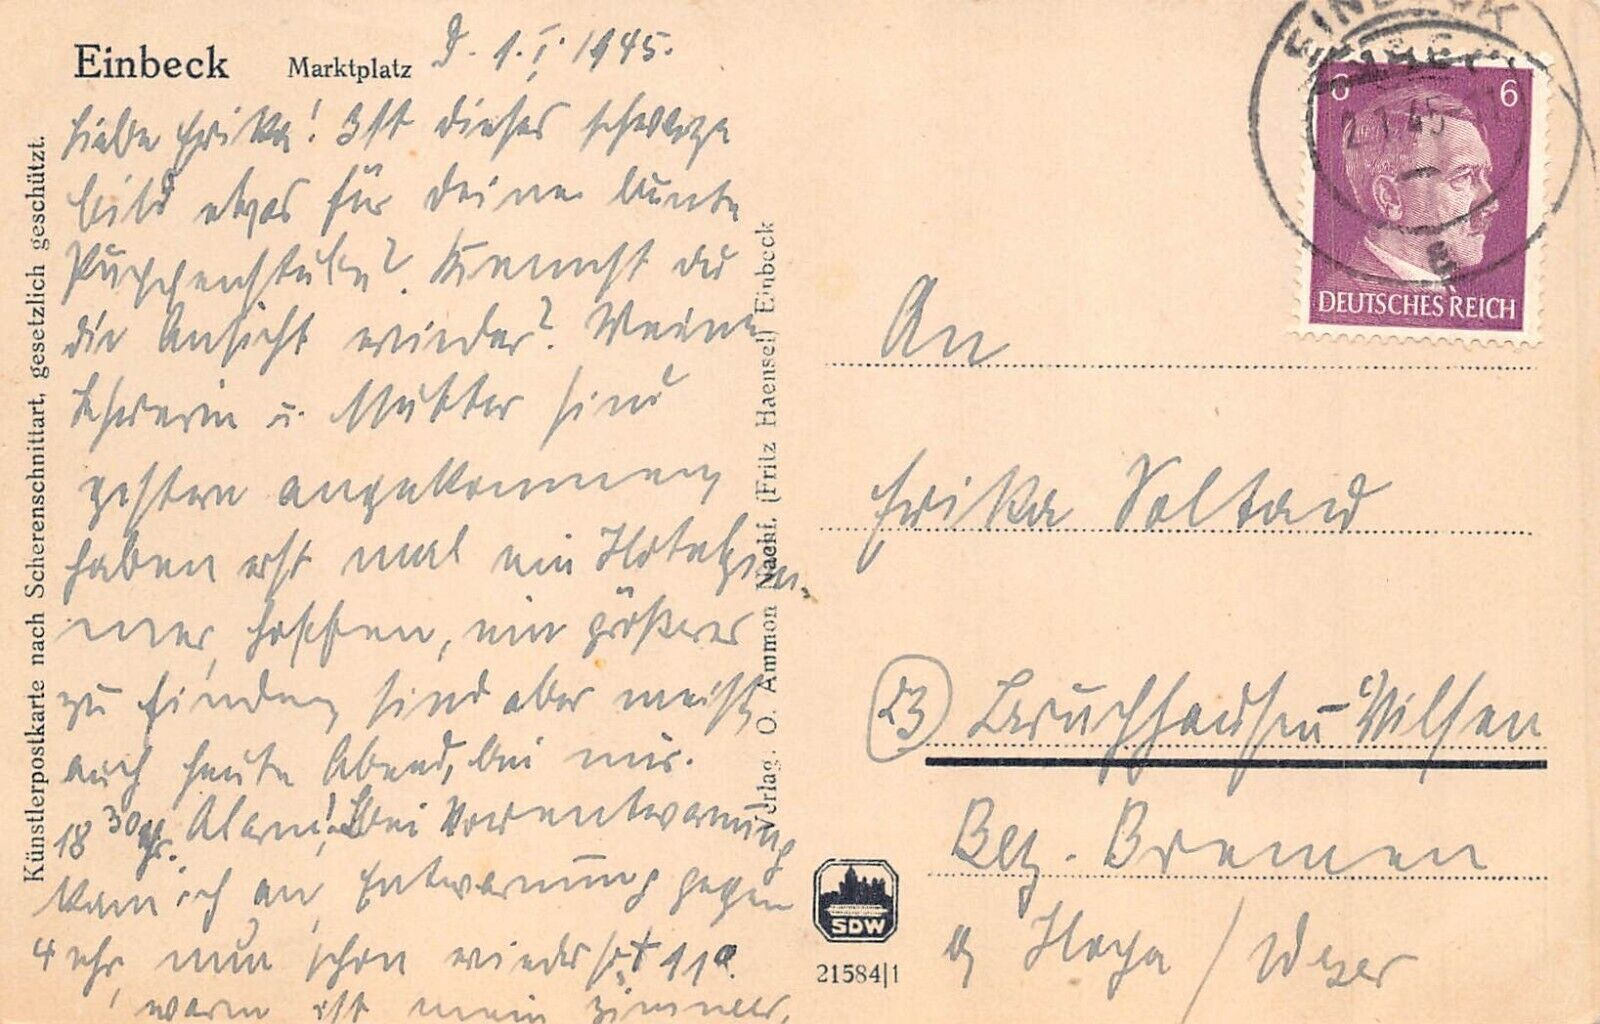 Einbeck Marktplatz d. 1.I.1945.
Liebe Erika! Ist dieses schwarze
Bild etwas für Deine bunte
Puppenstube? Kennst du
die Ansicht wieder? Meine
Lehrerin u. Mutter sind
gestern angekommen
haben erst mal ein Hotelzim-
mer, hoffen, ein größeres
zu finden, sind aber meist,
auch heute Abend, bei mir.
18 30 Uhr. Alarm! Bei Vorentwarnung
kam ich an, Entwarnung gegen
4 Uhr, nun schon wieder
warm ist mein Zimmer,
Künstlerpostkarte nach Scherenschnittart, gesetzlich geschützt.
Verlag. O. Ammon Nachf. (Fritz Haensel) Einbeck
EINBECK
2.1.45
6 6
DEUTSCHES REICH
An
Erika Soltau
(23) Bruchhausen-Vilsen
Bez. Bremen
Hoya / Weser
SDW
21584|1